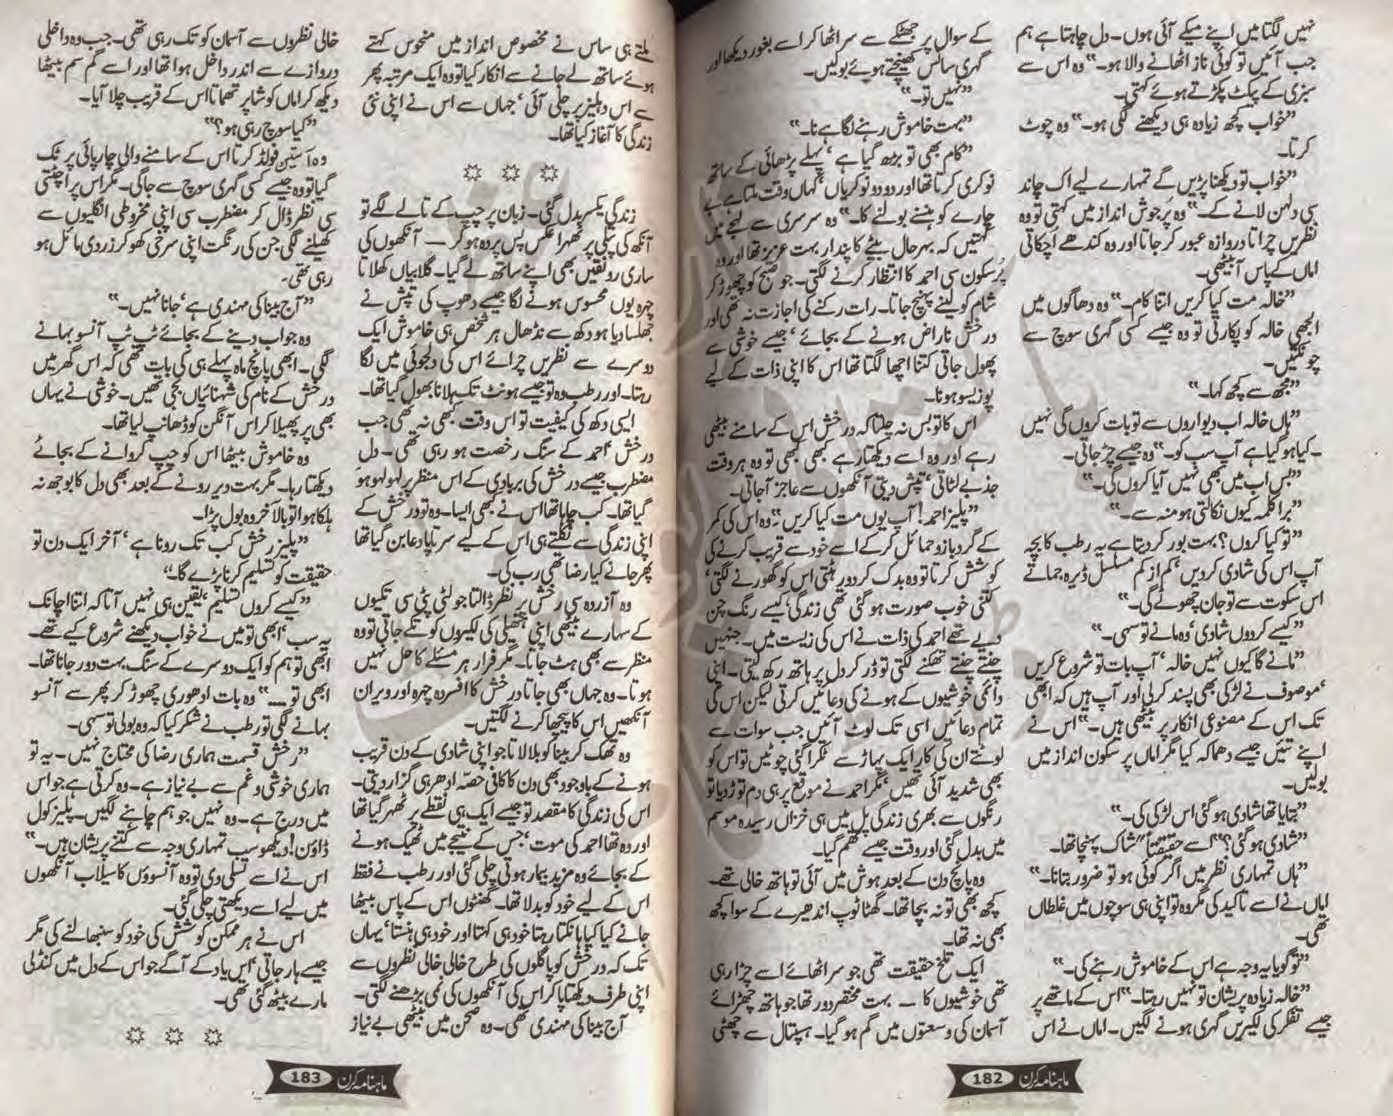 نہیں لگتا میں اپنے میکے آئی ہوں۔ دل چاہتا ہے ہم
جب آئیں تو کوئی ناز اٹھانے والا ہو۔“ وہ اس سے
سبزی کے پیکٹ پکڑتے ہوئے کہتی۔
”خواب کچھ زیادہ ہی دیکھنے لگی ہو۔“ وہ چوٹ
کرتا۔
”خواب تو دیکھنا پڑیں گے تمہارے لیے اک چاند
سی دلہن لانے کے۔“ وہ پُرجوش انداز میں کہتی تو وہ
نظریں چراتا دروازہ عبور کر جاتا اور وہ کندھے اچکاتی
اماں کے پاس آ بیٹھی۔
”خالہ مت کیا کریں اتنا کام۔“ وہ دھاگوں میں
الجھی خالہ کو پکارتی تو وہ جیسے کسی گہری سوچ سے
چونکتیں۔
”مجھ سے کچھ کہا۔“
”ہاں خالہ اب دیواروں سے تو بات کروں گی نہیں
۔ کیا ہو گیا ہے آپ سب کو۔“ وہ جیسے چڑ جاتی۔
”بس اب میں بھی نہیں آیا کروں گی۔“
”برا کلمہ کیوں نکالتی ہو منہ سے۔“
”تو کیا کروں؟ بہت بور کر دیتا ہے یہ رطب کا بچہ
آپ اس کی شادی کر دیں‘ کم از کم مسلسل ڈیرہ جمائے
اس سکوت سے تو جان چھوٹے گی۔“
”کیسے کردوں شادی‘ وہ مانے تو سہی۔“
”مانے گا کیوں نہیں خالہ‘ آپ بات تو شروع کریں
‘موصوف نے لڑکی بھی پسند کر لی اور آپ ہیں کہ ابھی
تک اس کے مصنوعی انکار پر بیٹھی ہیں۔“ اس نے
اپنے تئیں جیسے دھماکہ کیا مگر اماں پر سکون انداز میں
بولیں۔
”بتایا تھا شادی ہو گئی اس لڑکی کی۔“
”شادی ہو گئی؟“ اسے حقیقتاً ”شاک پہنچا تھا۔
”ہاں تمہاری نظر میں اگر کوئی ہو تو ضرور بتانا۔“
اماں نے اسے تاکید کی مگر وہ تو اپنی ہی سوچوں میں غلطاں
تھی۔
”تو گویا یہ وجہ ہے اس کے خاموش رہنے کی۔“
”خالہ زیادہ پریشان تو نہیں رہتا۔“ اس کے ماتھے پر
جیسے تفکر کی لکیریں گہری ہونے لگیں۔ اماں نے اس
کے سوال پر جھٹکے سے سر اٹھا کر اسے بغور دیکھا اور
گہری سانس کھینچتے ہوئے بولیں۔
”نہیں تو۔“
”بہت خاموش رہنے لگا ہے نا۔“
”کام بھی تو بڑھ گیا ہے‘ پہلے پڑھائی کے ساتھ
نوکری کرتا تھا اور دو دو نوکریاں‘ کہاں وقت ملتا ہے بے
چارے کو ہنسنے بولنے کا۔“ وہ سرسری سے لہجے میں
کہتیں کہ بہرحال بیٹے کا پندار بہت عزیز تھا اور وہ
پُرسکون سی احمد کا انتظار کرنے لگتی۔ جو صبح کو چھوڑ کر
شام کو لینے پہنچ جاتا۔ رات رکنے کی اجازت نہ تھی اور
درخش ناراض ہونے کے بجائے‘ جیسے خوشی سے
پھول جاتی کتنا اچھا لگتا تھا اس کا اپنی ذات کے لیے
پوزیسو ہونا۔
اس کا تو بس نہ چلتا کہ درخش اس کے سامنے بیٹھی
رہے اور وہ اسے دیکھتا رہے کبھی کبھی تو وہ ہر وقت
جذبے لٹاتی‘ تپش دیتی آنکھوں سے عاجز آجاتی۔
”پلیز احمد! آپ یوں مت کیا کریں“۔ وہ اس کی کمر
کے گرد بازو حمائل کر کے اسے خود سے قریب کرنے کی
کوشش کرتا تو وہ بدک کر دور ہٹتی اس کو گھورنے لگتی‘
کتنی خوب صورت ہو گئی تھی زندگی‘ کیسے رنگ چن
دیے تھے احمد کی ذات نے اس کی زیست میں۔ جنہیں
چنتے چنتے تھکنے لگتی تو ڈر کر دل پر ہاتھ رکھ لیتی۔ اپنی
دائمی خوشیوں کے ہونے کی دعائیں کرتی لیکن اس کی
تمام دعائیں اسی تک لوٹ آئیں جب سوات سے
لوٹتے ان کی کار ایک پہاڑ سے ٹکرا گئی چوٹیں تو اس کو
بھی شدید آئی تھیں‘ مگر احمد نے موقع پر ہی دم توڑ دیا تو
رنگوں سے بھری زندگی پل میں ہی خزاں رسیدہ موسم
میں بدل گئی اور وقت جیسے تھم گیا۔
وہ پانچ دن کے بعد ہوش میں آئی تو ہاتھ خالی تھے۔
کچھ بھی تو نہ بچا تھا۔ گھٹا ٹوپ اندھیرے کے سوا کچھ
بھی نہ تھا۔
ایک تلخ حقیقت تھی جو سر اٹھائے اسے چڑا رہی
تھی خوشیوں کا — بہت مختصر دور تھا جو ہاتھ چھڑائے
آسمان کی وسعتوں میں گم ہو گیا۔ ہسپتال سے چھٹی
ماہنامہ کرن 182
ملتے ہی ساس نے مخصوص انداز میں منحوس کہتے
ہوئے ساتھ لے جانے سے انکار کیا تو وہ ایک مرتبہ پھر
سے اس دہلیز پر چلی آئی‘ جہاں سے اس نے اپنی نئی
زندگی کا آغاز کیا تھا۔
☼ ☼ ☼
زندگی یکسر بدل گئی۔ زبان پر چپ کے تالے لگے تو
آنکھ کی پتلی پر ٹھہرا عکس پس پردہ ہو کر — آنکھوں کی
ساری رونقیں بھی اپنے ساتھ لے گیا۔ گلابیاں کھلاتا
چہرہ یوں محسوس ہونے لگا جیسے دھوپ کی تپش نے
جھلسا دیا ہو دکھ سے نڈھال ہر شخص ہی خاموش ایک
دوسرے سے نظریں چرائے اس کی دلجوئی میں لگا
رہتا۔ اور رطب وہ تو جیسے ہونٹ تک ہلانا بھول گیا تھا۔
ایسی دکھ کی کیفیت تو اس وقت کبھی نہ تھی جب
درخش‘ احمد کے سنگ رخصت ہو رہی تھی۔ دل
مضطرب جیسے درخش کی بربادی کے اس منظر پر لہو لہو ہو
گیا تھا۔ کب چاہا تھا اس نے کبھی ایسا۔ وہ تو درخش کے
اپنی زندگی سے نکلتے ہی اس کے لیے سراپا دعا بن گیا تھا
پھر جانے کیا رضا تھی رب کی۔
وہ آزردہ سی رخش پر نظر ڈالتا جو لٹی پٹی سی تکیوں
کے سہارے بیٹھی اپنی ہتھیلی کی لکیروں کو تکے جاتی تو وہ
منظر سے بھی ہٹ جاتا۔ مگر فرار ہر مسئلے کا حل نہیں
ہوتا۔ وہ جہاں بھی جاتا درخش کا افسردہ چہرہ اور ویران
آنکھیں اس کا پیچھا کرنے لگتیں۔
وہ تھک کر بینا کو بلا لاتا جو اپنی شادی کے دن قریب
ہونے کے باوجود بھی دن کا کافی حصہ ادھر ہی گزار دیتی۔
اس کی زندگی کا مقصد تو جیسے ایک ہی نقطے پر ٹھہر گیا تھا
اور وہ تھا احمد کی موت‘ جس کے نتیجے میں ٹھیک ہونے
کے بجائے وہ مزید بیمار ہوتی چلی گئی اور رطب نے فقط
اس کے لیے خود کو بدلا تھا۔ گھنٹوں اس کے پاس بیٹھا
جانے کیا کیا ہانکتا رہتا خود ہی کہتا اور خود ہی ہنستا‘ یہاں
تک کہ درخش کو پاگلوں کی طرح خالی خالی نظروں سے
اپنی طرف دیکھتا پا کر اس کی آنکھوں کی نمی بڑھنے لگتی۔
آج بینا کی مہندی تھی۔ وہ صحن میں بیٹھی بے نیاز
خالی نظروں سے آسمان کو تک رہی تھی۔ جب وہ داخلی
دروازے سے اندر داخل ہوا تھا اور اسے گم سم بیٹھا
دیکھ کر اماں کو شاپر تھماتا اس کے قریب چلا آیا۔
”کیا سوچ رہی ہو؟“
وہ آستین فولڈ کرتا اس کے سامنے والی چارپائی پر ٹک
گیا تو وہ جیسے کسی گہری سوچ سے جاگی۔ مگر اس پر اچٹتی
سی نظر ڈال کر مضطرب سی اپنی مخروطی انگلیوں سے
کھیلنے لگی جن کی رنگت اپنی سرخی کھو کر زردی مائل ہو
رہی تھی۔
”آج بینا کی مہندی ہے‘ جانا نہیں۔“
وہ جواب دینے کے بجائے ٹپ ٹپ آنسو بہانے
لگی۔ ابھی پانچ ماہ پہلے ہی کی بات تھی کہ اس گھر میں
درخش کے نام کی شہنائیاں بجی تھیں۔ خوشی نے یہاں
بھی پر پھیلا کر اس آنگن کو ڈھانپ لیا تھا۔
وہ خاموش بیٹھا اس کو چپ کروانے کے بجائے
دیکھتا رہا۔ مگر بہت دیر رونے کے بعد بھی دل کا بوجھ نہ
ہلکا ہوا تو بالاخر وہ بول پڑا۔
”پلیز رخش کب تک رونا ہے‘ آخر ایک دن تو
حقیقت کو تسلیم کرنا پڑے گا۔“
”کیسے کروں تسلیم‘ یقین ہی نہیں آتا کہ اتنا اچانک
یہ سب‘ ابھی تو میں نے خواب دیکھنے شروع کیے تھے۔
ابھی تو ہم کو ایک دوسرے کے سنگ بہت دور جانا تھا۔
ابھی تو ۔۔۔۔“ وہ بات ادھوری چھوڑ کر پھر سے آنسو
بہانے لگی تو رطب نے شکر کیا کہ وہ بولی تو سہی۔
”رخش قسمت ہماری رضا کی محتاج نہیں۔ یہ تو
ہماری خوشی و غم سے بے نیاز ہے۔ وہ کرتی ہے جو اس
میں درج ہے۔ وہ نہیں جو ہم چاہنے لگیں۔ پلیز کول
ڈاؤن! دیکھو سب تمہاری وجہ سے کتنے پریشان ہیں۔“
اس نے اسے تسلی دی تو وہ آنسوؤں کا سیلاب آنکھوں
میں لیے اسے دیکھتی چلی گئی۔
اس نے ہر ممکن کوشش کی خود کو سنبھالنے کی مگر
جیسے ہار جاتی‘ اس یاد کے آگے جو اس کے دل میں کنڈلی
مارے بیٹھ گئی تھی۔
☼ ☼ ☼
ماہنامہ کرن 183